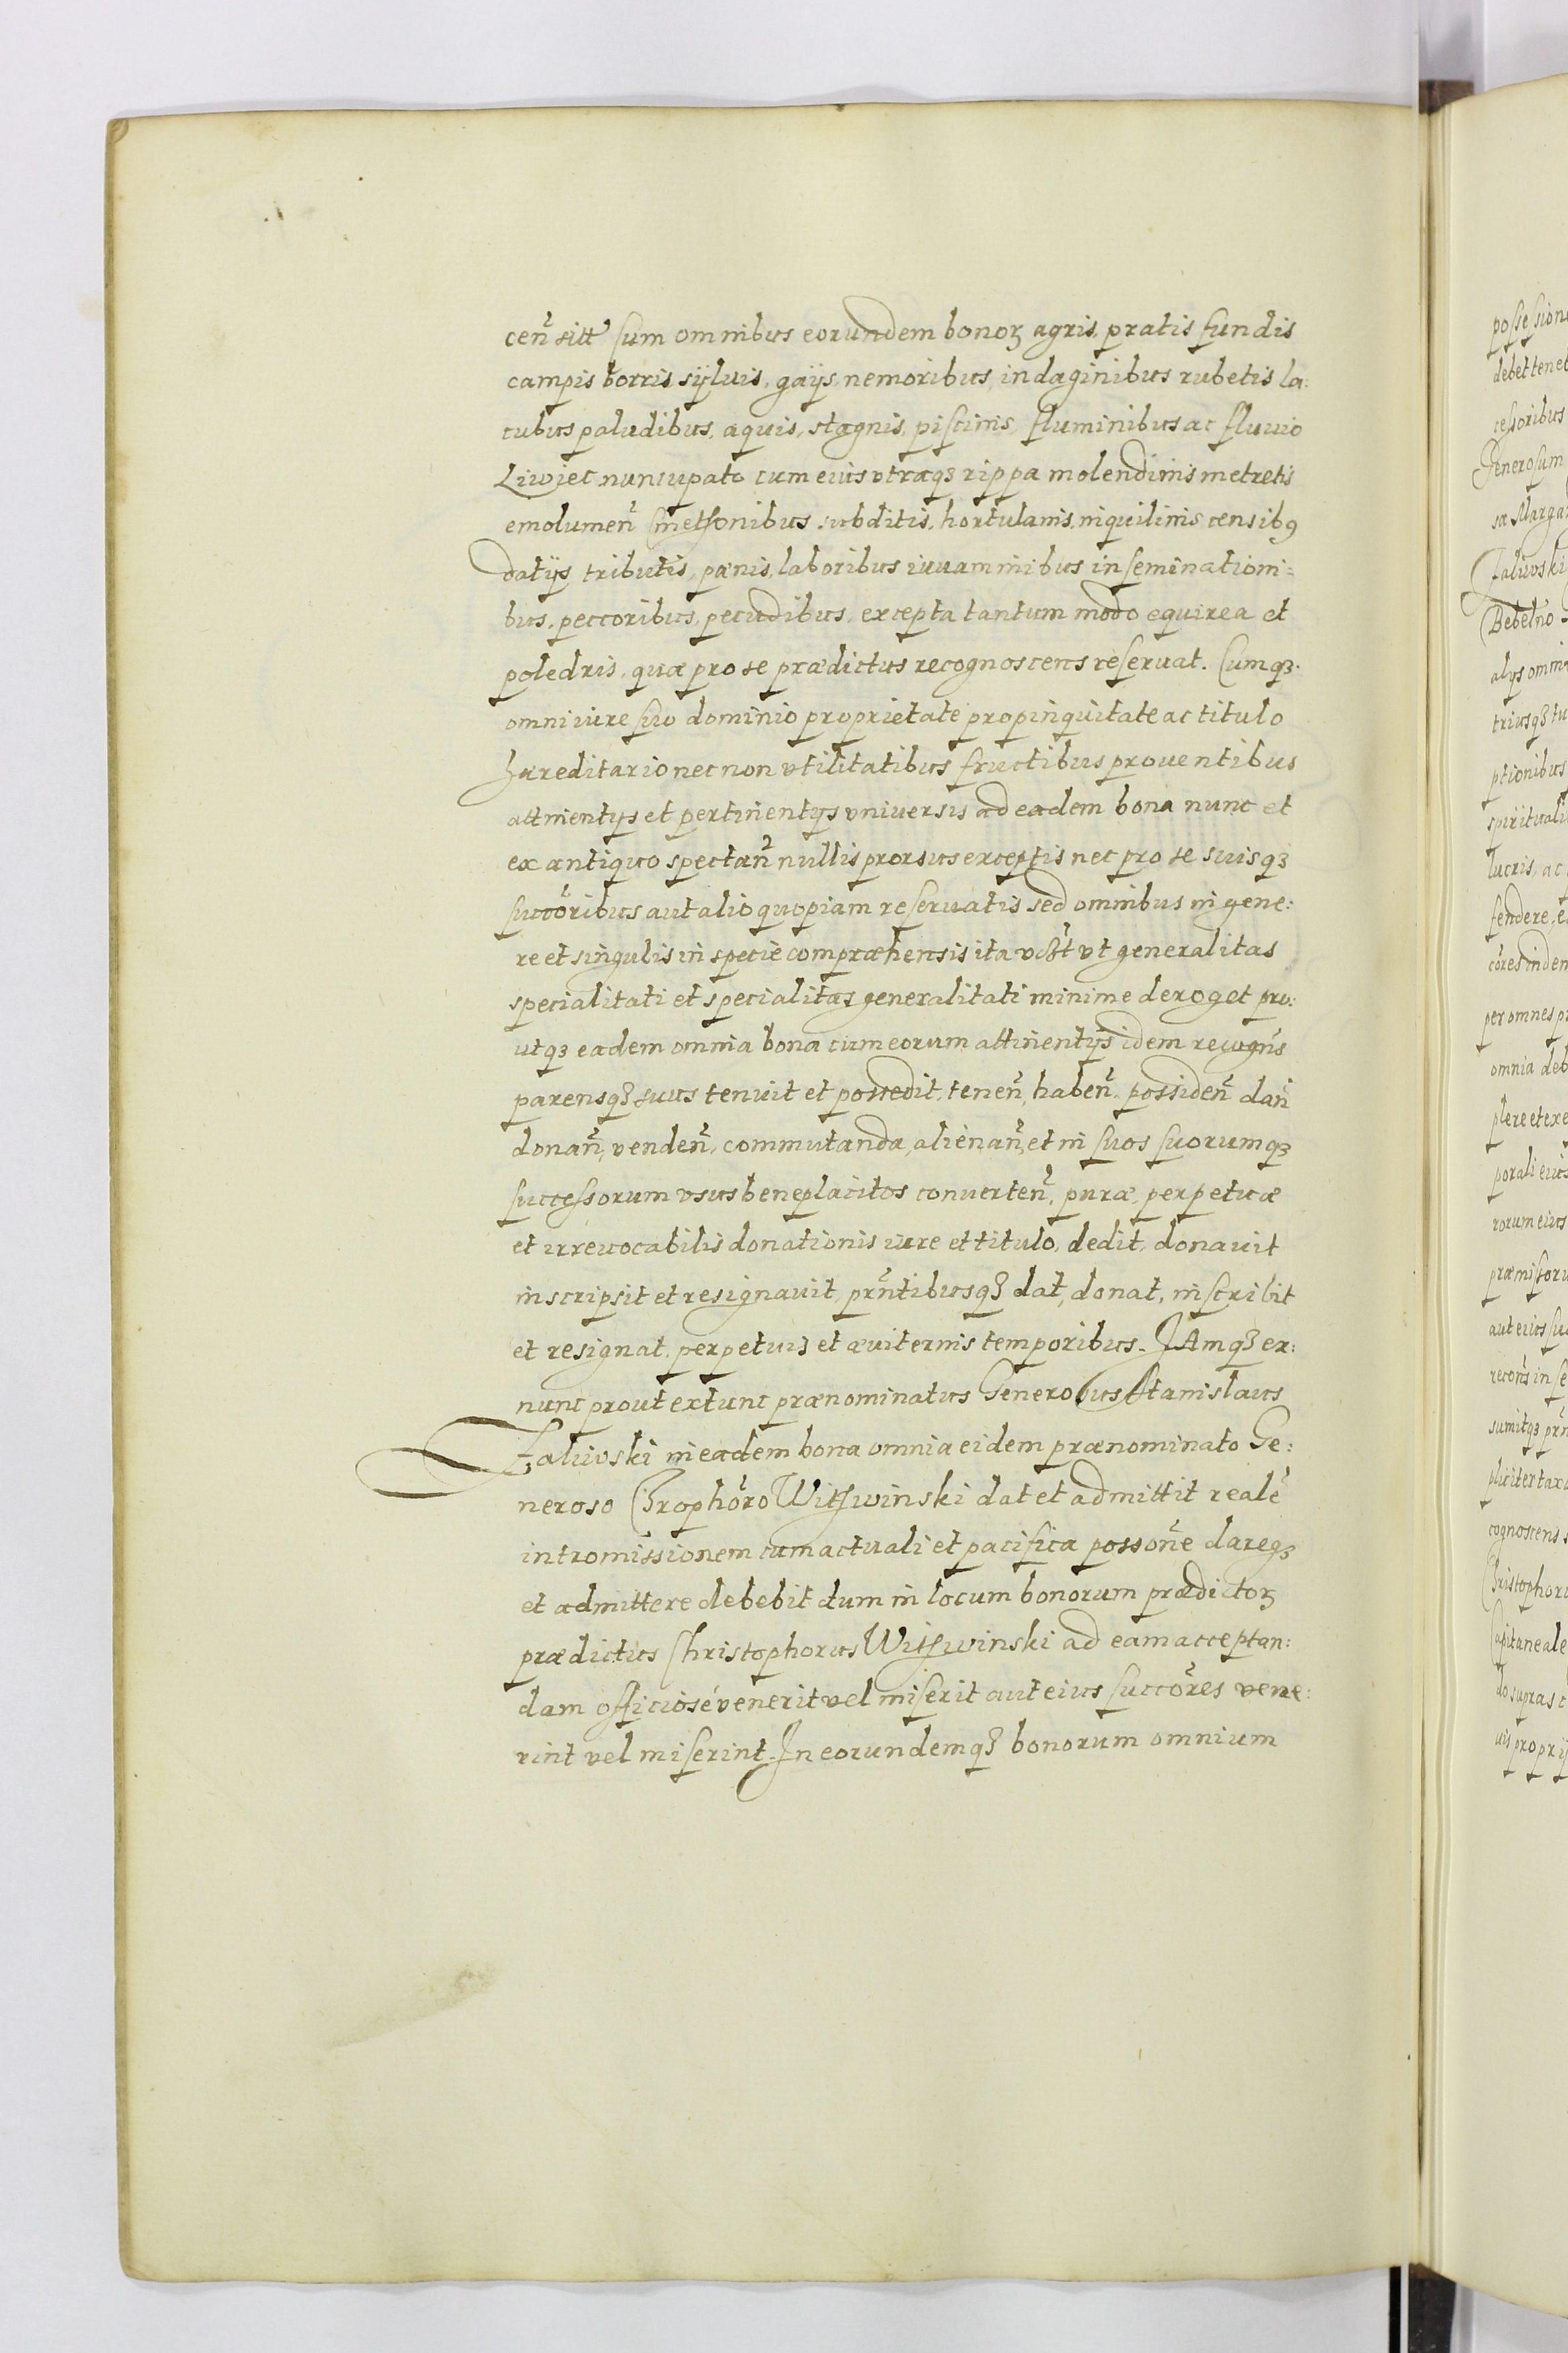 cen̄ sitt Cum omnibus eorundem bonoꝝ agris, pratis fundis
campis borris sÿluis, gaÿs, nemoribus, indaginibus rubetis la:
cubus paludibus, aquis, stagnis, piscinis, fluminibus ac fluuio
Liwiec nuncupato cum eius vtraqꝫ rippa molendinis metretis
emolumen̄ Cmetſonibus subditis, hortulanis, inquilinis censibꝰ
datÿs tributis, pænis, laboribus iuuaminibus inseminationi=
bus, peccoribus, pecudibus, excepta tantum modo equirea et
poledris, quæ pro se prædictus recognoscens reſeruat. Cumqꝫ
omni iure suo dominio proprietate propinquitate ac titulo
hæreditario nec non vtilitatibus fructibus prouentibus
attinentÿs et pertinentÿs vniuersis ad eadem bona nunc et
ex antiquo spectan̄ nullis prorsus exceptis nec pro se suisqꝫ
succōribus aut alio quopiam reſeruatis sed omnibus in gene:
re et singulis in specie compræhensis ita vt generalitas
specialitati et specialitas generalitati minime deroget pro:
utqꝫ eadem omnia bona cum eorum attinentÿs idem recogn̄s
parensqꝫ suus tenuit et possedit, tenen̄, haben̄, possiden̄ dan̄
donan̄, venden̄, commutanda, alienan̄, et in suos suorumqꝫ
succeſsorum vsus beneplacitos conuerten̄, puræ, perpetuæ
et irreuocabilis donationis iure et titulo, dedit, donauit
inscripsit et resignauit, prn̄tibusqꝫ dat, donat, inscribit
et resignat, perpetuis et æuiternis temporibus. IAmqꝫ ex:
nunc prout extunc prænominatus Generosus Stanislaus
Zaliwski in eadem bona omnia eidem prænominato Ge:
neroso Chrophōro Witſwinski dat et admittit realē
intromissionem cum actuali et pacifica possōne dareqꝫ
et admittere debebit dum in locum bonorum prædictoꝝ
prædictus Christophorus Witſwinski ad eam acceptan:
dam officiosé venerit vel miserit aut eius succōres vene:
rint vel miserint. In eorundemqꝫ bonorum omnium
poſseſsion
debet tenet
ceſsoribus
Generosum
sa Marga
Zaliwski
Bebełno
alÿs omni
triusqꝫ tu
ptionibus
spirituali
lucris, ac
fendere, e
cōres inden
per omnes p
omnia deb
plere et exe
porali eius
rorum eius
præmiſsoru
aut eius su
recon̄s in se
sumitqꝫ prn̄
pliciter tax
cognoscens s
Christophoru
Capitaneale
do supras c
uis proprÿ